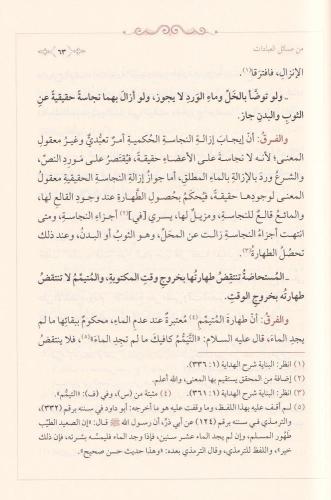 من مسائل العبادات
٦٣
الإنزال، فافترقا(١).
ـ ولو توضَّأ بالخَلِّ وماءِ الوَردِ لا يجوز، ولو أزالَ بهما نجاسةً حقيقيةً عنِ
الثوبِ والبدنِ جاز.
والفرقُ: أنَّ إيجابَ إزالةِ النجاسةِ الحُكميةِ أمرٌ تعبُّديٌّ وغيرُ معقولِ
المعنى؛ لأنه لا نجاسةَ على الأعضاءِ حقيقةً، فيُقتَصرُ على مَورِدِ النصِّ،
والشرعُ وردَ بالإزالةِ بالماءِ المطلقِ، أما جوازُ إزالةِ النجاسةِ الحقيقيةِ معقولُ
المعنى لوجودِها حقيقةً، فيُحكَمُ بحُصولِ الطَّهارةِ عندَ وجودِ القالعِ لها،
والمائعُ قالعٌ للنجاسةِ، ومزيلٌ لها، يسري [في](٢) أجزاءِ النجاسةِ، ومتى
انتهت أجزاءُ النجاسةِ زالت عنِ المحَلِّ، وهو الثوبُ أو البدنُ، وعند ذلك
تحصُلُ الطهارةُ(٣).
ـ المُستحاضةُ تنتقِضُ طهارتُها بخروجِ وقتِ المكتوبةِ، والمُتيمِّمُ لا تنتقضُ
طهارتُه بخروجِ الوقتِ.
والفرقُ: أنَّ طهارةَ المُتيمِّم(٤) مُعتبرةٌ عندَ عدمِ الماءِ، محكومٌ ببقائِها ما لم
يجِدِ الماءَ، قال عليه السلام: «التَّيَمُّمُ كافيكَ ما لم تجِدِ الماءَ»(٥)، فلا ينتقضُ
(١) انظر: البناية شرح الهداية (١: ٣٣٦).
(٢) إضافة من المحقق يستقيم بها المعنى، والله أعلم.
(٣) انظر: البناية شرح الهداية (١: ٣٦١).
(٤) مثبتة من (س)، وفي (ف): «التيمُّم».
(٥) لم أقف عليه بهذا اللفظ، وما وقفت عليه هو ما أخرجه: أبو داود في سننه برقم (٣٣٢)،
والترمذي في سننه برقم (١٢٤) عن أبي ذرٍّ، أن رسول الله ﷺ قال: «إن الصعيد الطيِّب
طَهُور المسلم، وإن لم يجد الماء عشر سنين، فإذا وجد الماء فليُمسَّه بشرته، فإن ذلك
خير»، واللفظ للترمذي، وقال الترمذي بعده: «وهذا حديث حسن صحيح».